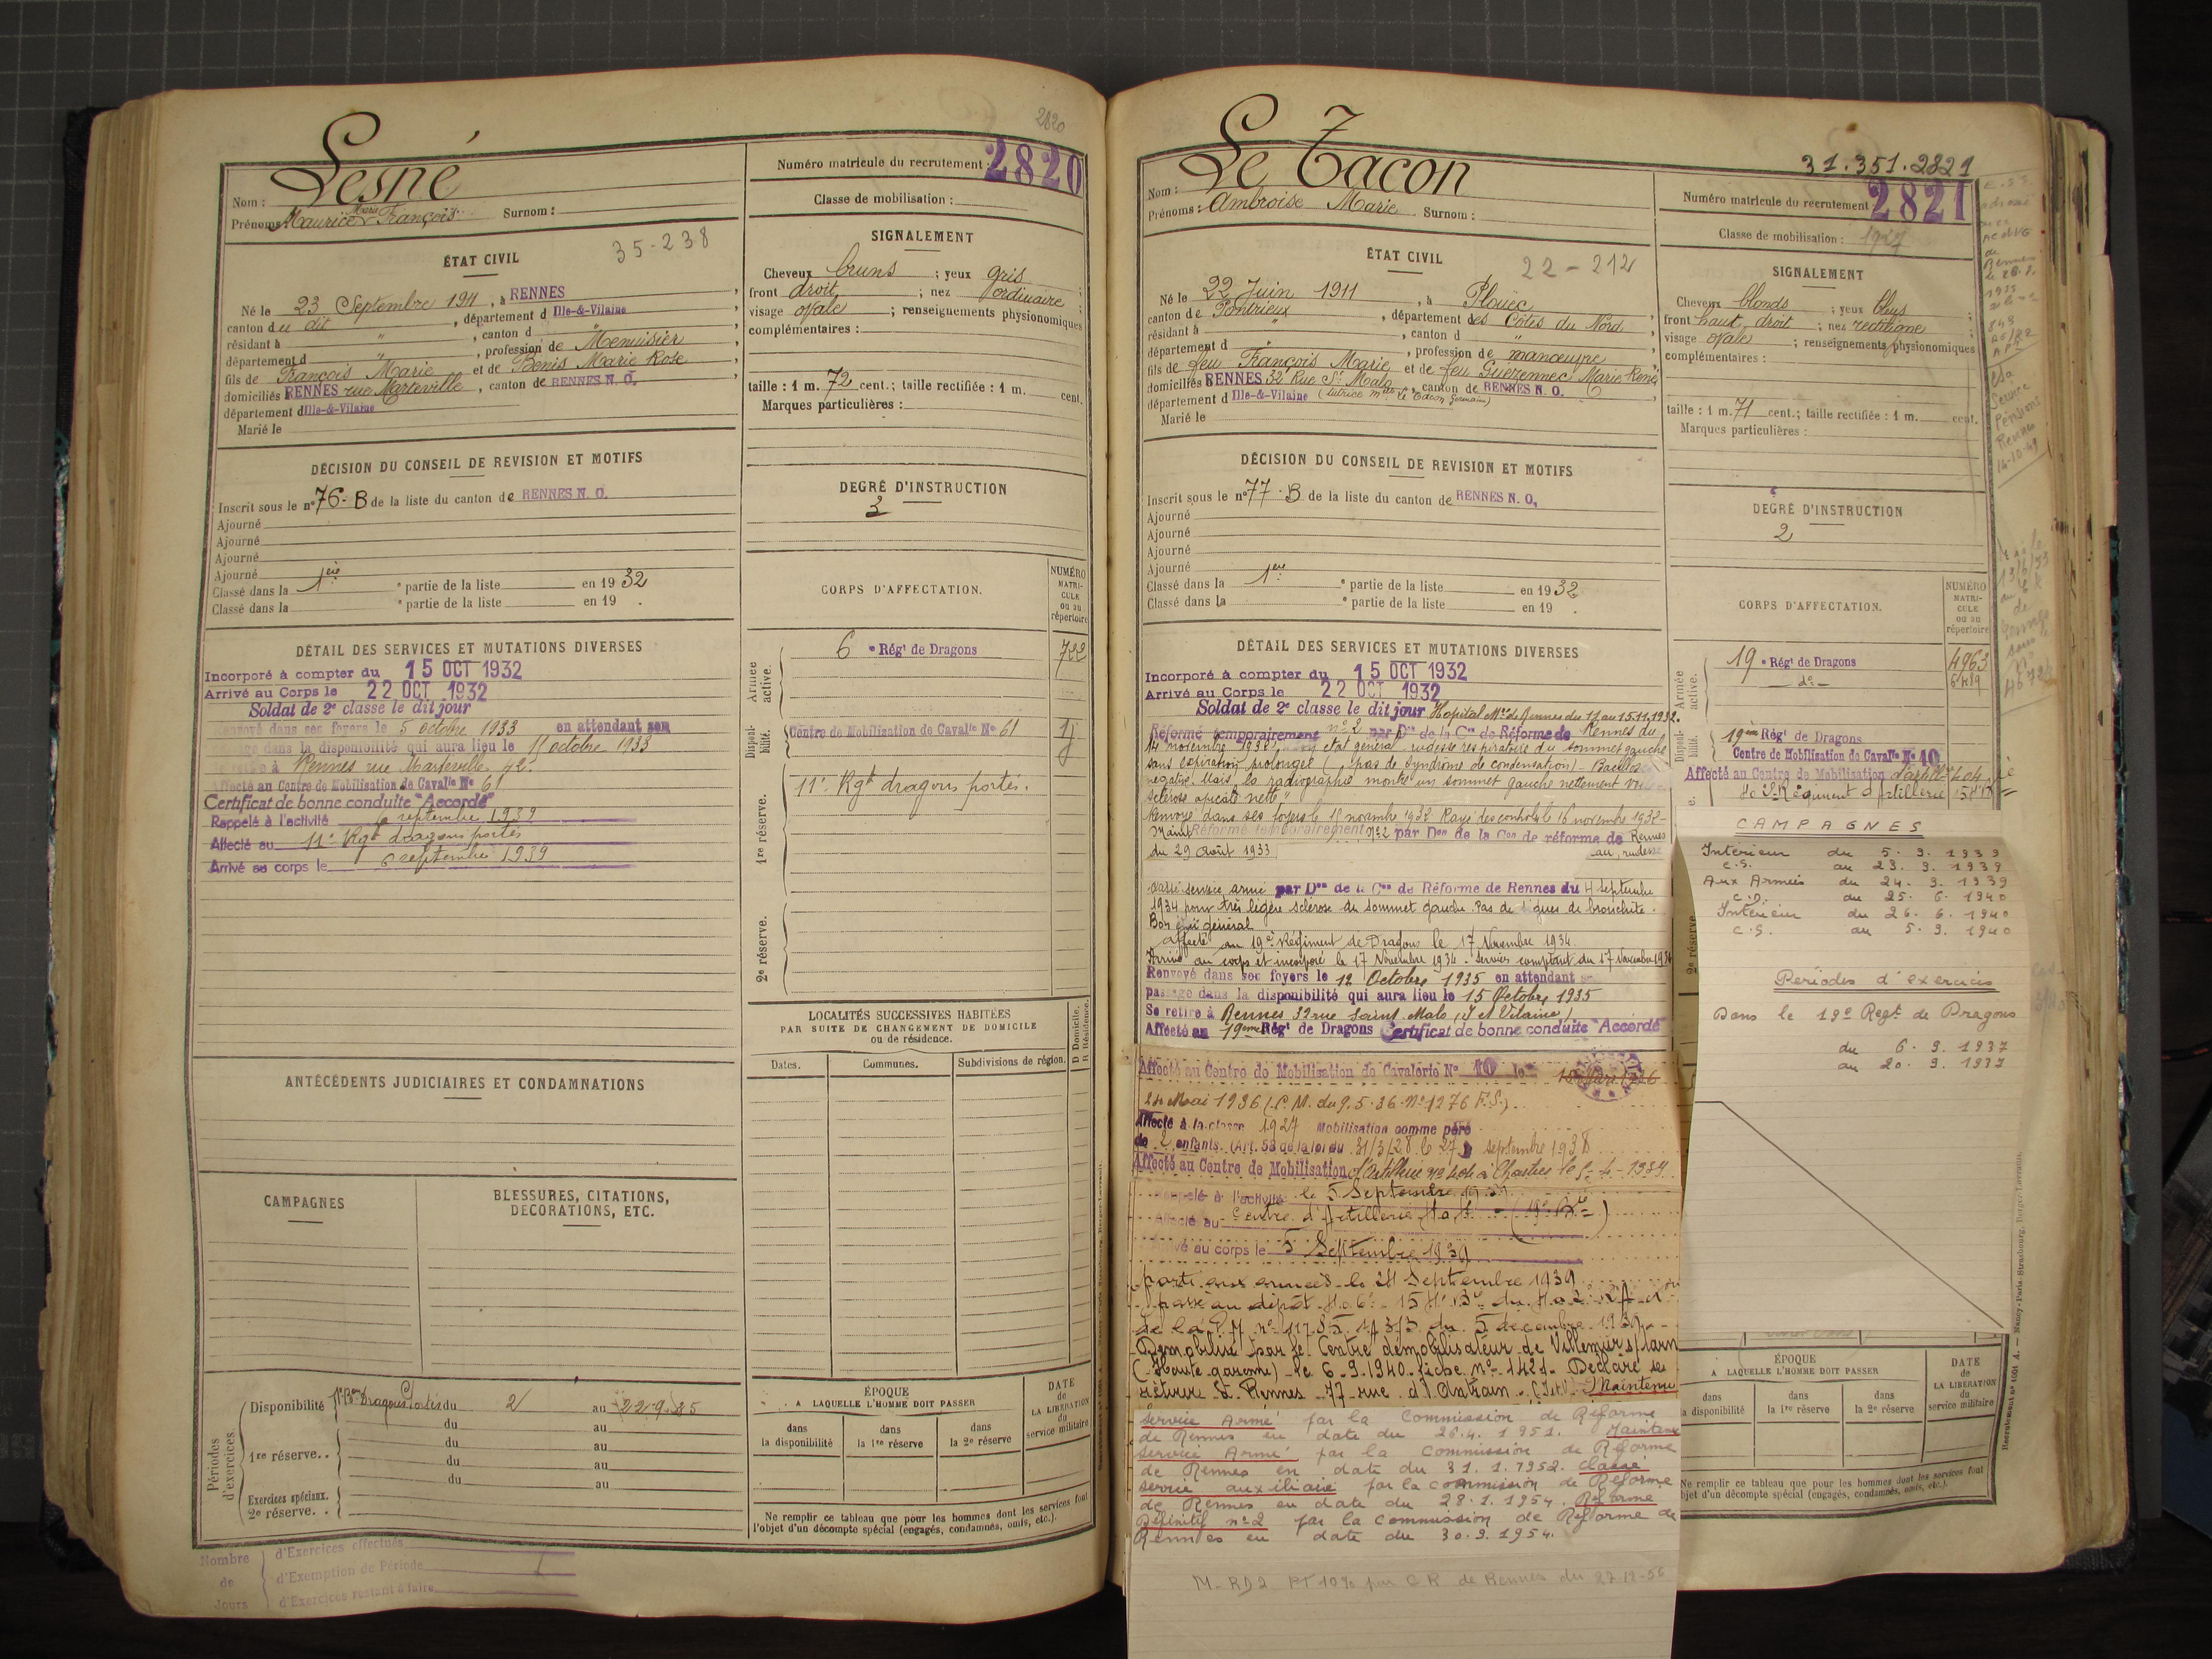 2820
Lesné
Nom :
Prénoms : Maurice Marie François Surnom :
Numéro matricule du recrutement : 2820
Classe de mobilisation :
ÉTAT CIVIL
35-238
Né le 23 Septembre 1911, à RENNES
canton du dit, département d Ille-&-Vilaine
résidant à ", canton d "
département d ", profession de Menuisier
fils de François Marie et de Benis Marie Rose
domiciliés RENNES rue Marteville, canton de RENNES N. O.
département d Ille-&-Vilaine
Marié le
SIGNALEMENT
Cheveux bruns ; yeux gris ;
front droit ; nez ordinaire ;
visage ovale ; renseignements physionomiques
complémentaires :
taille : 1 m. 72 cent.; taille rectifiée : 1 m. cent.
Marques particulières :
DÉCISION DU CONSEIL DE REVISION ET MOTIFS
Inscrit sous le n° 76-B de la liste du canton de RENNES N. O.
Ajourné
Ajourné
Ajourné
Ajourné
Classé dans la 1ère partie de la liste en 1932
Classé dans la e partie de la liste en 19 .
DEGRÉ D'INSTRUCTION
3
CORPS D'AFFECTATION.
NUMÉRO MATRICULE ou au répertoire
Armée active.
6e Régt de Dragons
722
Disponibilité.
Centre de Mobilisation de Cavalie No 61
1re réserve.
11e Rgt dragons portés.
2e réserve.
DÉTAIL DES SERVICES ET MUTATIONS DIVERSES
Incorporé à compter du 15 OCT 1932
Arrivé au Corps le 22 OCT 1932
Soldat de 2e classe le dit jour
Renvoyé dans ses foyers le 5 octobre 1933 en attendant son
passage dans la disponibilité qui aura lieu le 15 octobre 1933
Se retire à Rennes rue Marteville 42.
Affecté au Centre de Mobilisation de Cavalie No 61
Certificat de bonne conduite "Accordé"
Rappelé à l'activité septembre 1939
Affecté au 11e Rgt dragons portés
Arrivé au corps le 6 septembre 1939
ANTÉCÉDENTS JUDICIAIRES ET CONDAMNATIONS
CAMPAGNES
BLESSURES, CITATIONS, DÉCORATIONS, ETC.
LOCALITÉS SUCCESSIVES HABITÉES
PAR SUITE DE CHANGEMENT DE DOMICILE
ou de résidence.
Dates.
Communes.
Subdivisions de région.
D Domicile.
R Résidence.
Périodes d'exercices.
Disponibilité Dragons Portés du 2 au 22-9-35
du au
1re réserve.. du au
du au
du au
Exercices spéciaux.
2e réserve. .
ÉPOQUE
A LAQUELLE L'HOMME DOIT PASSER
dans la disponibilité
dans la 1re réserve
dans la 2e réserve
DATE de LA LIBÉRATION du service militaire
Ne remplir ce tableau que pour les hommes dont les services font
l'objet d'un décompte spécial (engagés, condamnés, omis, etc.).
Nombre de Jours
d'Exercices effectués
d'Exemption de Période
d'Exercices restant à faire
Le Tacon
31.351.2821
Nom :
Prénoms : Ambroise Marie Surnom :
Numéro matricule du recrutement : 2821
Classe de mobilisation : 1927
ÉTAT CIVIL
22-212
Né le 22 Juin 1911, à Plouëc
canton de Pontrieux, département des Côtes du Nord
résidant à ", canton d "
département d ", profession de manœuvre
fils de feu François Marie et de feu Guezennec Marie Renée
domiciliés RENNES 32 Rue St Malo, canton de RENNES N. O.
département d Ille-&-Vilaine
Marié le
SIGNALEMENT
Cheveux blonds ; yeux bleus ;
front haut, droit ; nez rectiligne ;
visage ovale ; renseignements physionomiques
complémentaires :
taille : 1 m. 71 cent.; taille rectifiée : 1 m. cent.
Marques particulières :
Service
Pensions
Rennes
14-10-49
DÉCISION DU CONSEIL DE REVISION ET MOTIFS
Inscrit sous le n° 77-B de la liste du canton de RENNES N. O.
Ajourné
Ajourné
Ajourné
Ajourné
Classé dans la 1ère partie de la liste en 1932
Classé dans la e partie de la liste en 19 .
DEGRÉ D'INSTRUCTION
2
CORPS D'AFFECTATION.
NUMÉRO MATRICULE ou au répertoire
Armée active.
19e Régt de Dragons 4963
do 6489
Disponibilité.
19ème Régt de Dragons
Centre de Mobilisation de Cavalie No 10
Affecté au Centre de Mobilisation d'artillie 404
Régiment d'Artillerie
2e réserve
DÉTAIL DES SERVICES ET MUTATIONS DIVERSES
Incorporé à compter du 15 OCT 1932
Arrivé au Corps le 22 OCT 1932
Soldat de 2e classe le dit jour Hopital Mre de Rennes du 11 au 15.11.1932.
Réformé temporairement n°2 par Don de la Con de Réforme de Rennes du
14 novembre 1932 état général rudesse respiratoire du sommet gauche
sans expiration prolongée (pas de syndrome de condensation) - Bacilles
négatif. Mais la radiographie montre un sommet gauche nettement
sclérose apicale nette"
Renvoyé dans ses foyers le 15 novembre 1932 Rayé des contrôles le 16 novembre 1932-
Maint Réformé temporairement n°2 par Don de la Con de réforme de Rennes
du 29 Août 1933
rudesse
Passé service armé par Don de la Con de Réforme de Rennes du 4 Septembre
1934 pour très légère sclérose du sommet gauche. Pas de signes de bronchite.
Bon état général
affecté au 19e Régiment de Dragons le 17 Novembre 1934.
Arrivé au corps et incorporé le 17 Novembre 1934. Services comptant du 17 Novembre 1934
Renvoyé dans ses foyers le 12 Octobre 1935 en attendant
passage dans la disponibilité qui aura lieu le 15 Octobre 1935
Se retire à Rennes 32 rue Saint-Malo (I et Vilaine)
Affecté au 19ème Régt de Dragons Certificat de bonne conduite "Accordé"
Affecté au Centre de Mobilisation de Cavalerie No 10 le
24 Mai 1936 (C.M. du 9.5.36 No 1276 F.S.)
Affecté à la classe 1927 Mobilisation comme père
de 2 enfants (Art. 58 de la loi du 31/3/28 le 27 septembre 1938
Affecté au Centre de Mobilisation d'Artillerie no 404 à Chartres le
Rappelé à l'activité le 5 Septembre 1939
Affecté au Centre d'Artillerie
Arrivé au corps le 5 Septembre 1939
parti aux armées le 24 Septembre 1939
passé au dépôt
5 décembre 1939
Démobilisé par le Centre démobilisateur de Villemur s/Tarn
(Haute garonne) le 6.9.1940. fiche no 1421. Déclare se
retirer à Rennes 77 rue d'Antrain Maintenu
Service Armé par la Commission de Réforme
de Rennes en date du 26.4.1951. Maintenu
Service Armé par la Commission de Réforme
de Rennes en date du 31.1.1952. classé
service auxiliaire par la commission de Réforme
de Rennes en date du 28.1.1954. Réformé
Définitif n°2 par la Commission de Réforme de
Rennes en date du 30.9.1954.
M-RD2 PT 10% par CR de Rennes du 27-12-56
CAMPAGNES
Intérieur du 5. 9. 1939
C.S. au 23. 9. 1939
Aux Armées du 24. 9. 1939
C.D. au 25. 6. 1940
Intérieur du 26. 6. 1940
C.S. au 5. 9. 1940
Périodes d'exercices
Dans le 19e Regt de Dragons
du 6. 9. 1937
au 20. 9. 1937
ÉPOQUE
A LAQUELLE L'HOMME DOIT PASSER
dans la disponibilité
dans la 1re réserve
dans la 2e réserve
DATE de LA LIBÉRATION du service militaire
Ne remplir ce tableau que pour les hommes dont les services font
l'objet d'un décompte spécial (engagés, condamnés, omis, etc.).